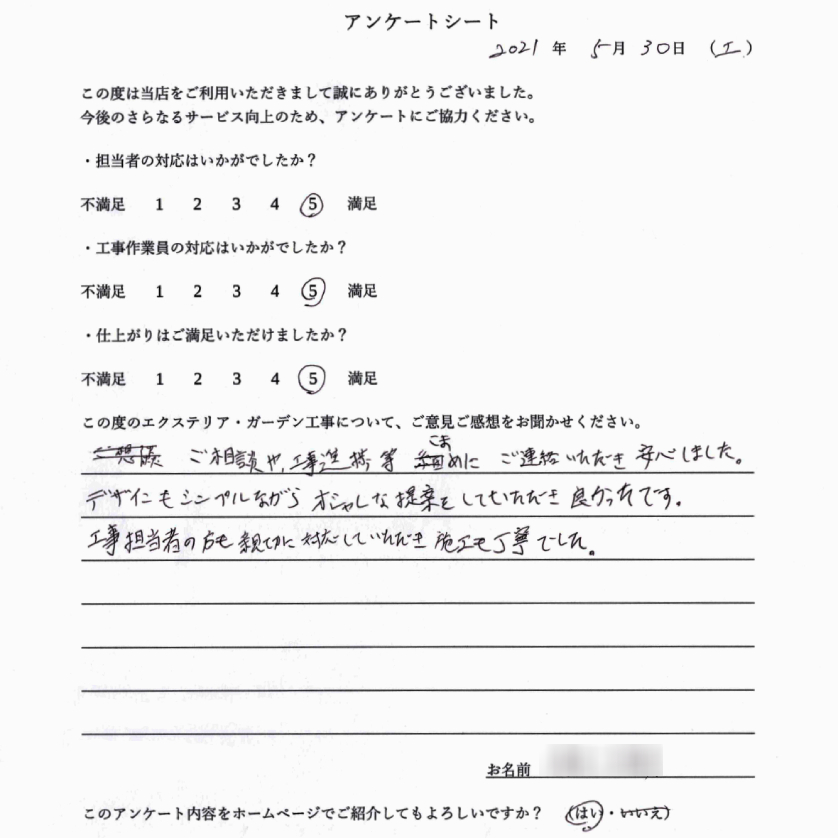 アンケートシート
2021 年 5月 30日 (工)
この度は当店をご利用いただきまして誠にありがとうございました。
今後のさらなるサービス向上のため、アンケートにご協力ください。
・担当者の対応はいかがでしたか？
不満足 1 2 3 4 5 満足
・工事作業員の対応はいかがでしたか？
不満足 1 2 3 4 5 満足
・仕上がりはご満足いただけましたか？
不満足 1 2 3 4 5 満足
この度のエクステリア・ガーデン工事について、ご意見ご感想をお聞かせください。
ご相談や、工事進捗等 こまめに ご連絡いただき 安心しました。
デザインもシンプルながら オシャレな提案をしていただき 良かったです。
工事担当者の方も親切に対応していただき 施工も丁寧でした。
お名前
このアンケート内容をホームページでご紹介してもよろしいですか？ (はい・いいえ)